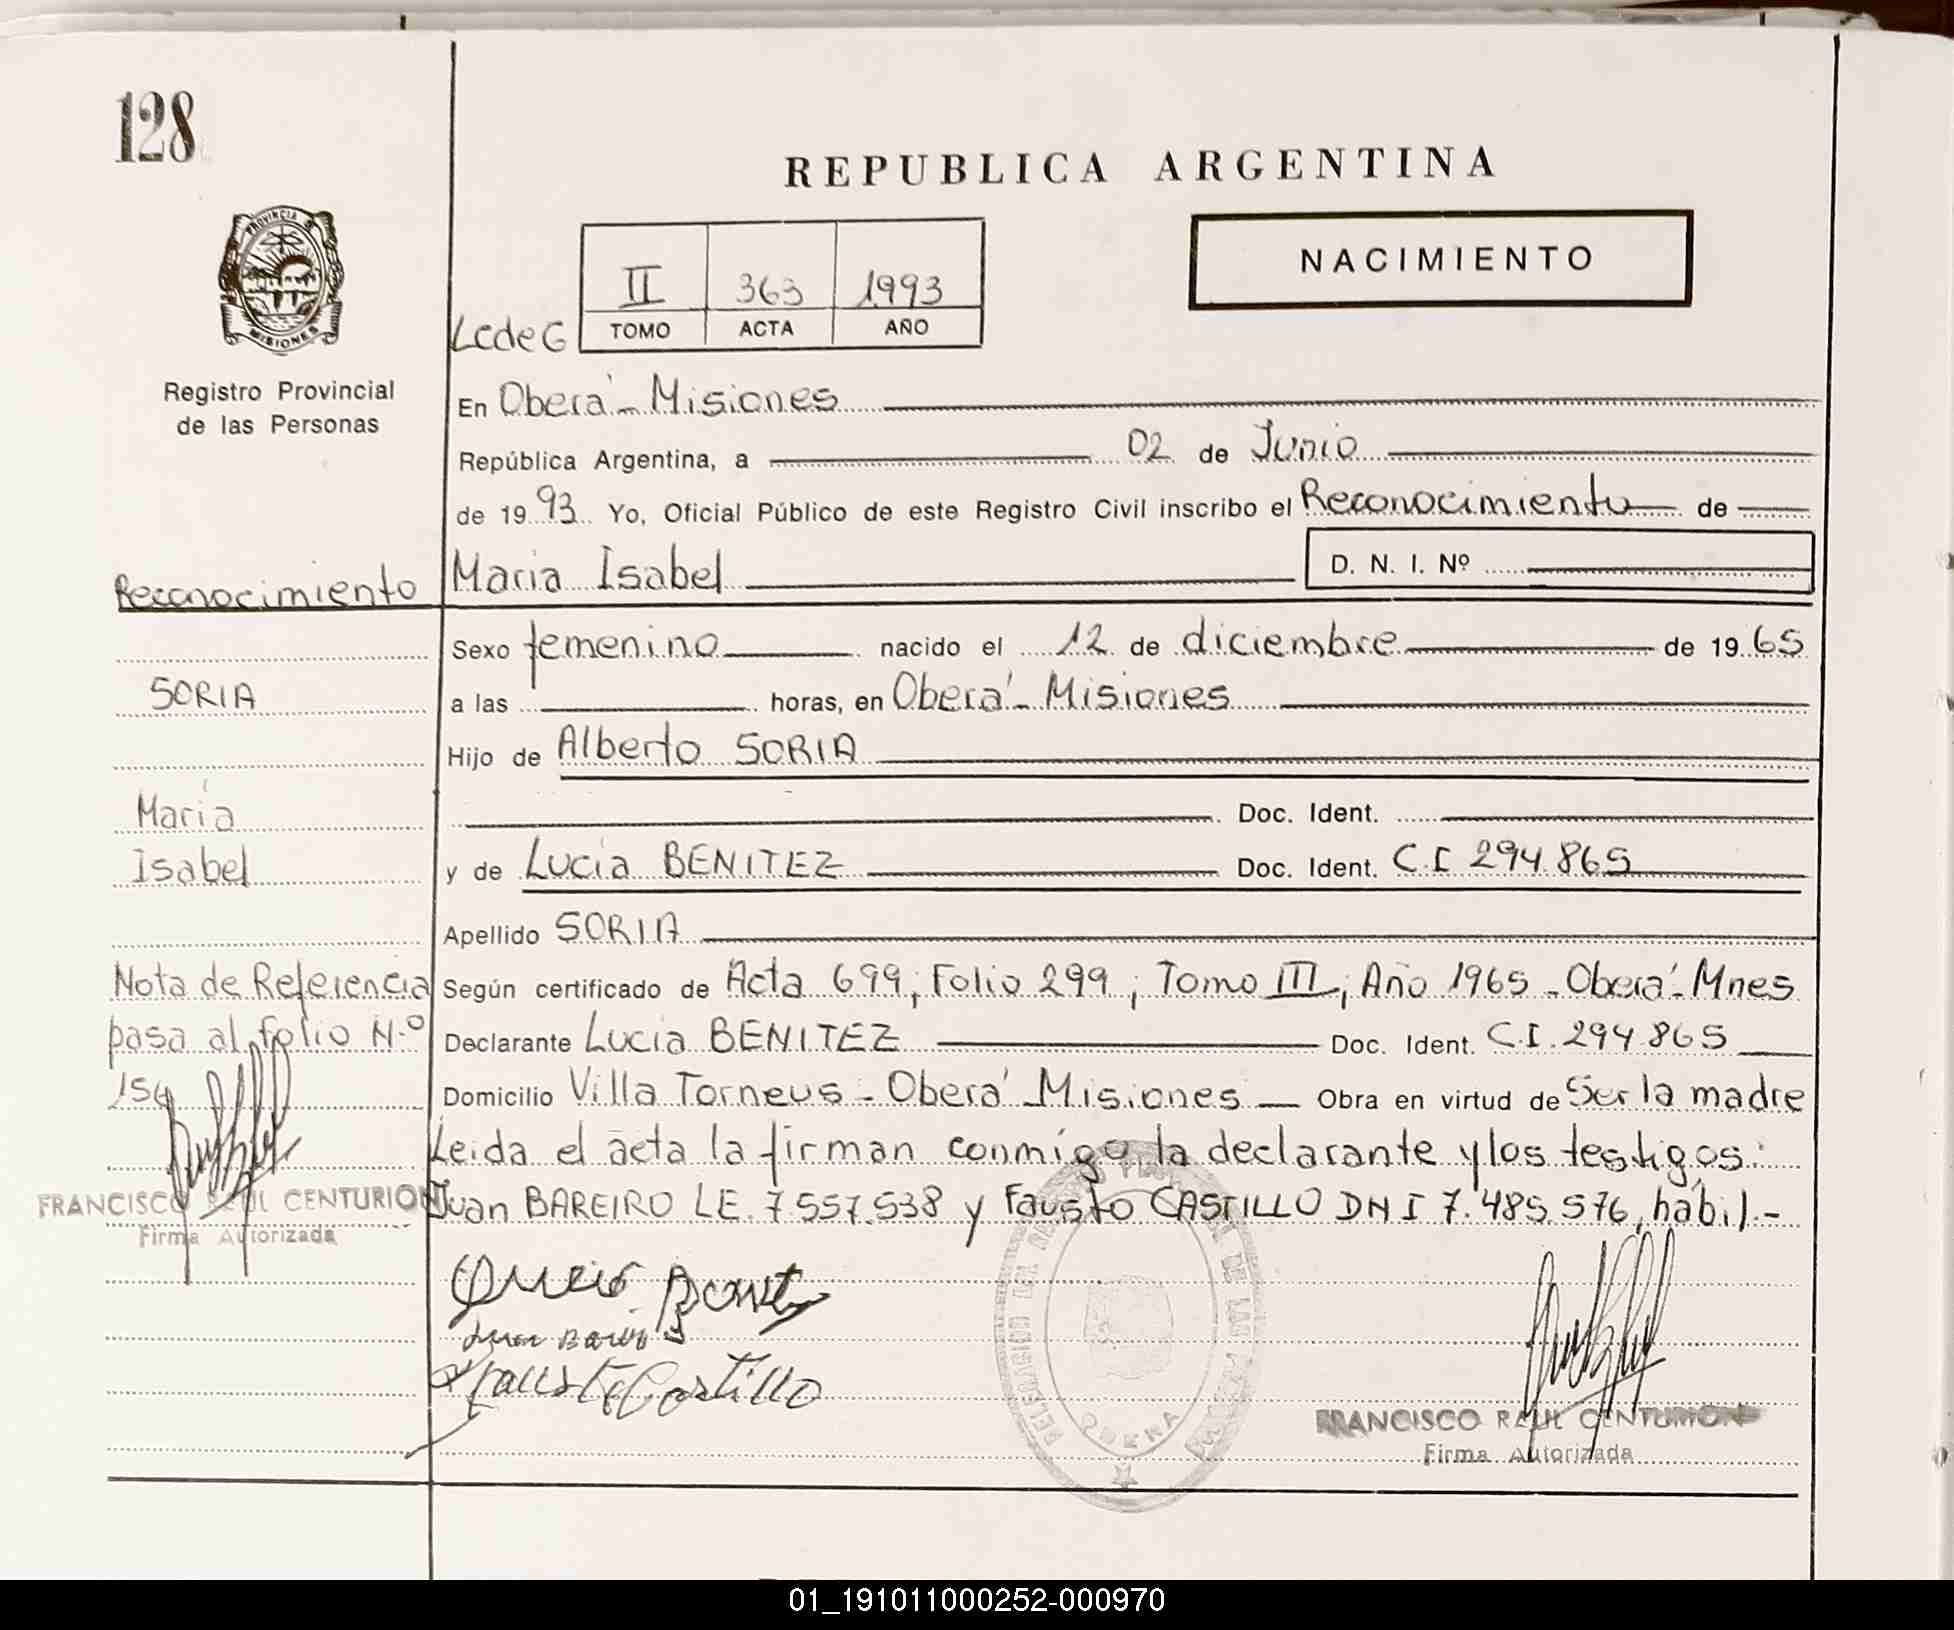 128
REPUBLICA ARGENTINA
PROVINCIA DE
MISIONES
Registro Provincial
de las Personas
NACIMIENTO
II 363 1993
LcdeG TOMO ACTA AÑO
En Oberá - Misiones
República Argentina, a 02 de Junio
de 1993 Yo, Oficial Público de este Registro Civil inscribo el Reconocimiento de
Maria Isabel D. N. I. Nº
Reconocimiento
SORIA
María
Isabel
Nota de Referencia
pasa al folio N.º
154
FRANCISCO RAUL CENTURION
Firma Autorizada
Sexo femenino nacido el 12 de diciembre de 1965
a las horas, en Oberá - Misiones
Hijo de Alberto SORIA
Doc. Ident.
y de Lucia BENITEZ Doc. Ident. C.I 294.865
Apellido SORIA
Según certificado de Acta 699; Folio 299; Tomo III; Año 1965 - Oberá - Mnes
Declarante Lucia BENITEZ Doc. Ident. C.I. 294.865
Domicilio Villa Torneus - Oberá Misiones Obra en virtud de Ser la madre
Leida el acta la firman conmigo la declarante y los testigos:
Juan BAREIRO LE. 7.557.538 y Fausto CASTILLO DNI 7.485.576, habil.-
Fausto Castillo
OBERA
FRANCISCO RAUL CENTURION
Firma Autorizada
01_191011000252-000970